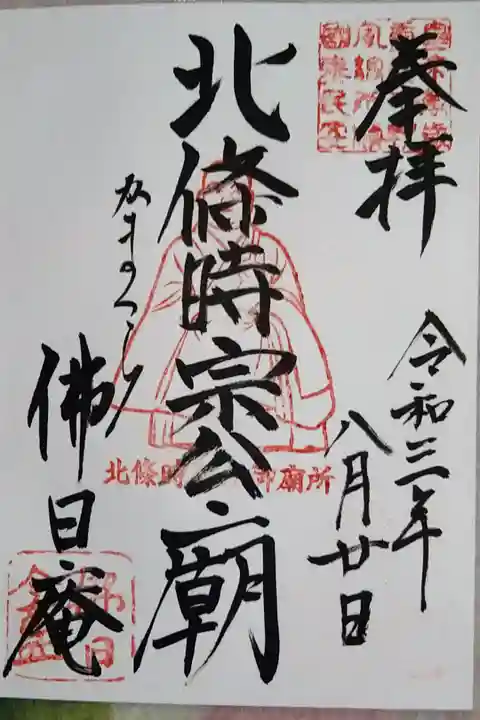 奉拝
令和三年
八月廿日
北條時宗公廟
北條時
御廟所
かまくら
佛日庵